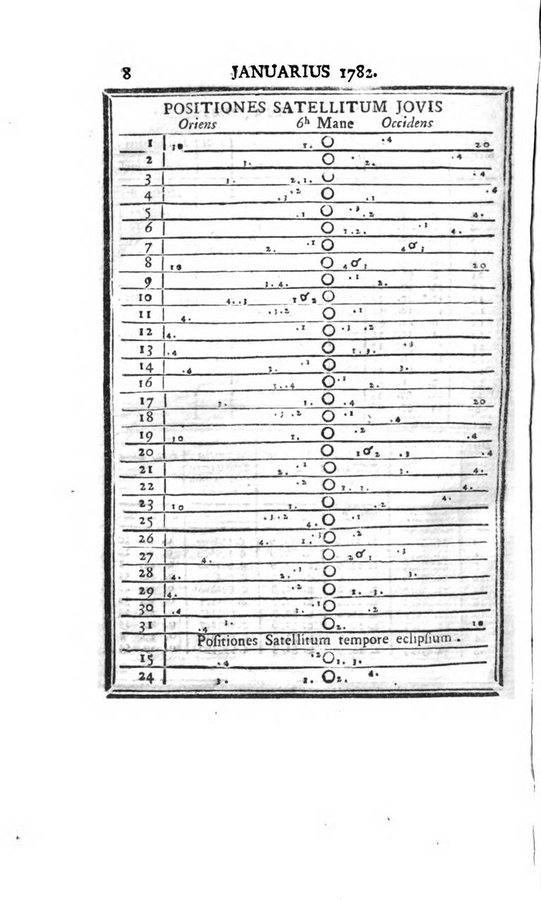 8 JANUARIUS 1782.
POSITIONES SATELLITUM JOVIS
Oriens 6h Mane Occidens
1 1. O .4 20
2 3. O 2. .4
3 3. 2. 1. O .4
4 .3 .2 O .1 .4
5 .1 O .3 .2 4.
6 O 1. 2. .3 4.
7 2. .1 O 4 ☌ 3
8 10 O 4 ☌ 3 20
9 3. 4. O .1 2.
10 4. .3 1 ☌ 2 O
11 4. .3 .2 O .1
12 4. .1 O .3 .2
13 .4 O 1. 3. .3
14 .4 3. .1 O
16 3. .4 O .1 2.
17 3. 1. O .4 20
18 .3 .2 O .1 .4
19 30 1. O .2 .4
20 O 1 ☌ 2 .3 .4
21 2. .1 O 4.
22 .2 O 1. 4.
23 10 O .2 4.
25 .3 .2 4. O .1
26 4. 1. .3 O .2
27 4. O 2 ☌ 1 .3
28 4. 2. .1 O 3.
29 4. .2 O 1. 3.
30 .4 .1 O .2
31 .4 O 2. 10
Positiones Satellitum tempore eclipsium.
15 .4 .2 O 1. 3.
24 3. 1. O 2. 4.